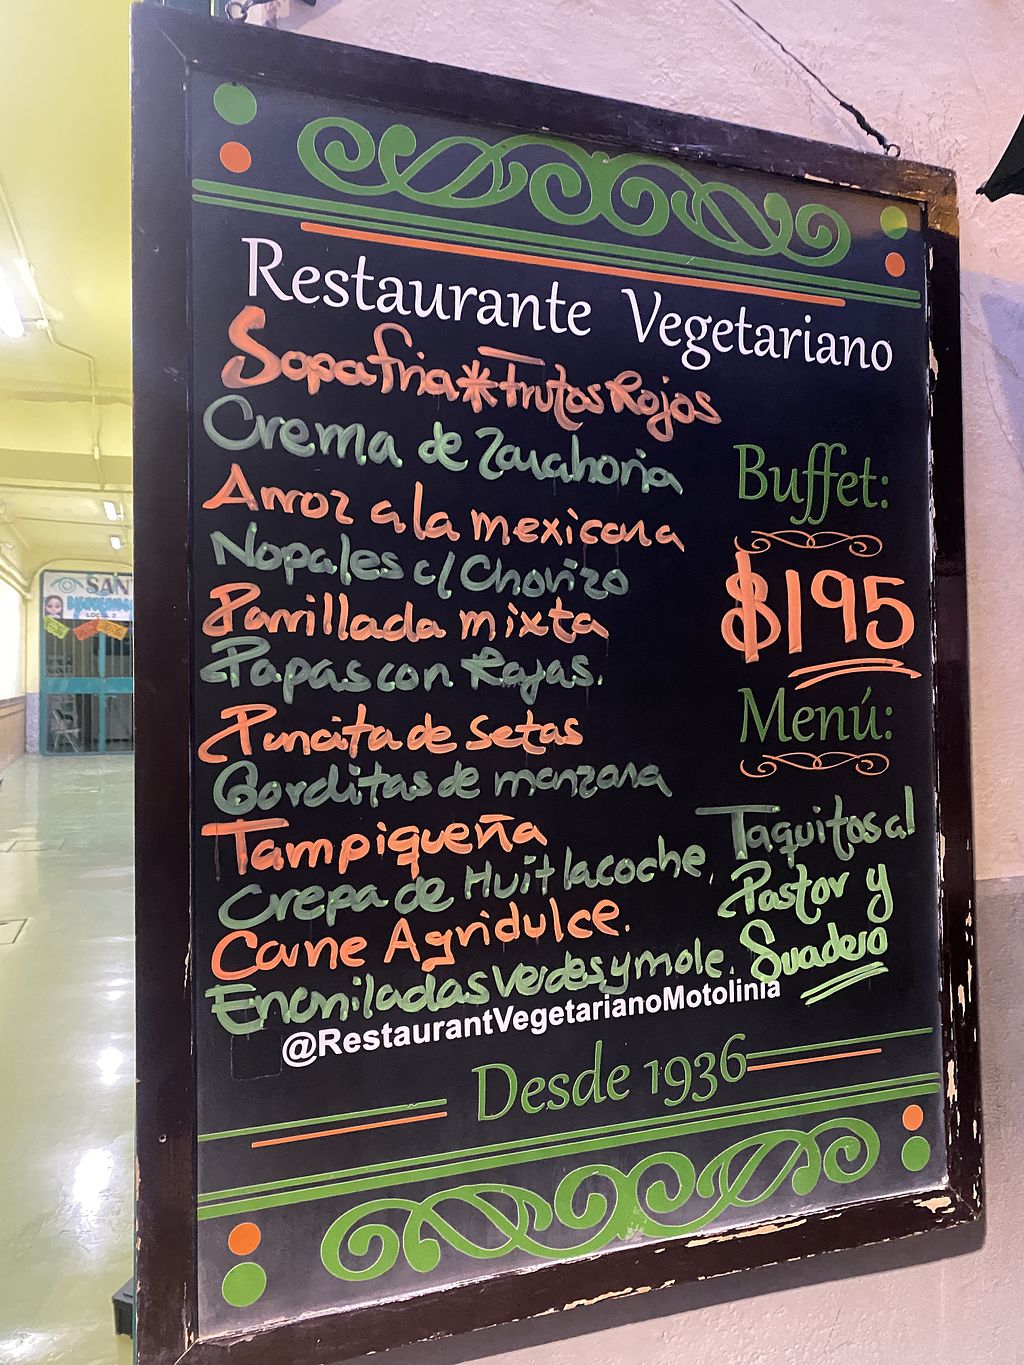 Restaurante Vegetariano
Sopa fria * Frutos Rojos
Crema de Zanahoria
Arroz a la mexicana
Nopales c/ Chorizo
Parrillada mixta
Papas con Rajas.
Pancita de Setas
Gorditas de manzana
Tampiqueña
Crepa de Huitlacoche,
Carne Agridulce.
Enchiladas verdes y mole.
Buffet:
$195
Menú:
Taquitos al
Pastor y
Suadero
@RestaurantVegetarianoMotolinia
Desde 1936
SAN